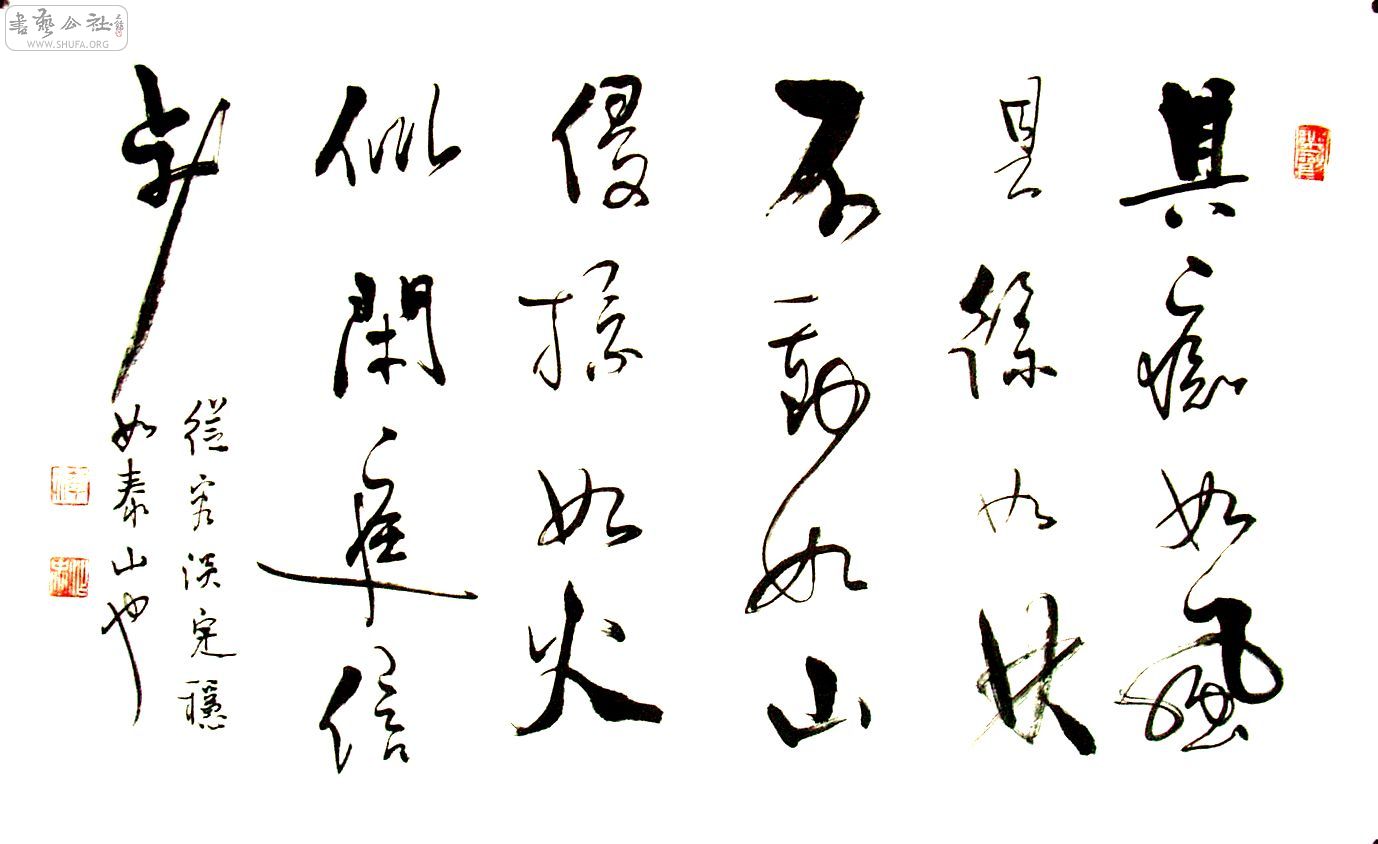 其疾如風
其徐如林
不動如山
侵掠如火
似閑庭信
步
從容淡定穩
如泰山也
書藝公社
WWW.SHUFA.ORG